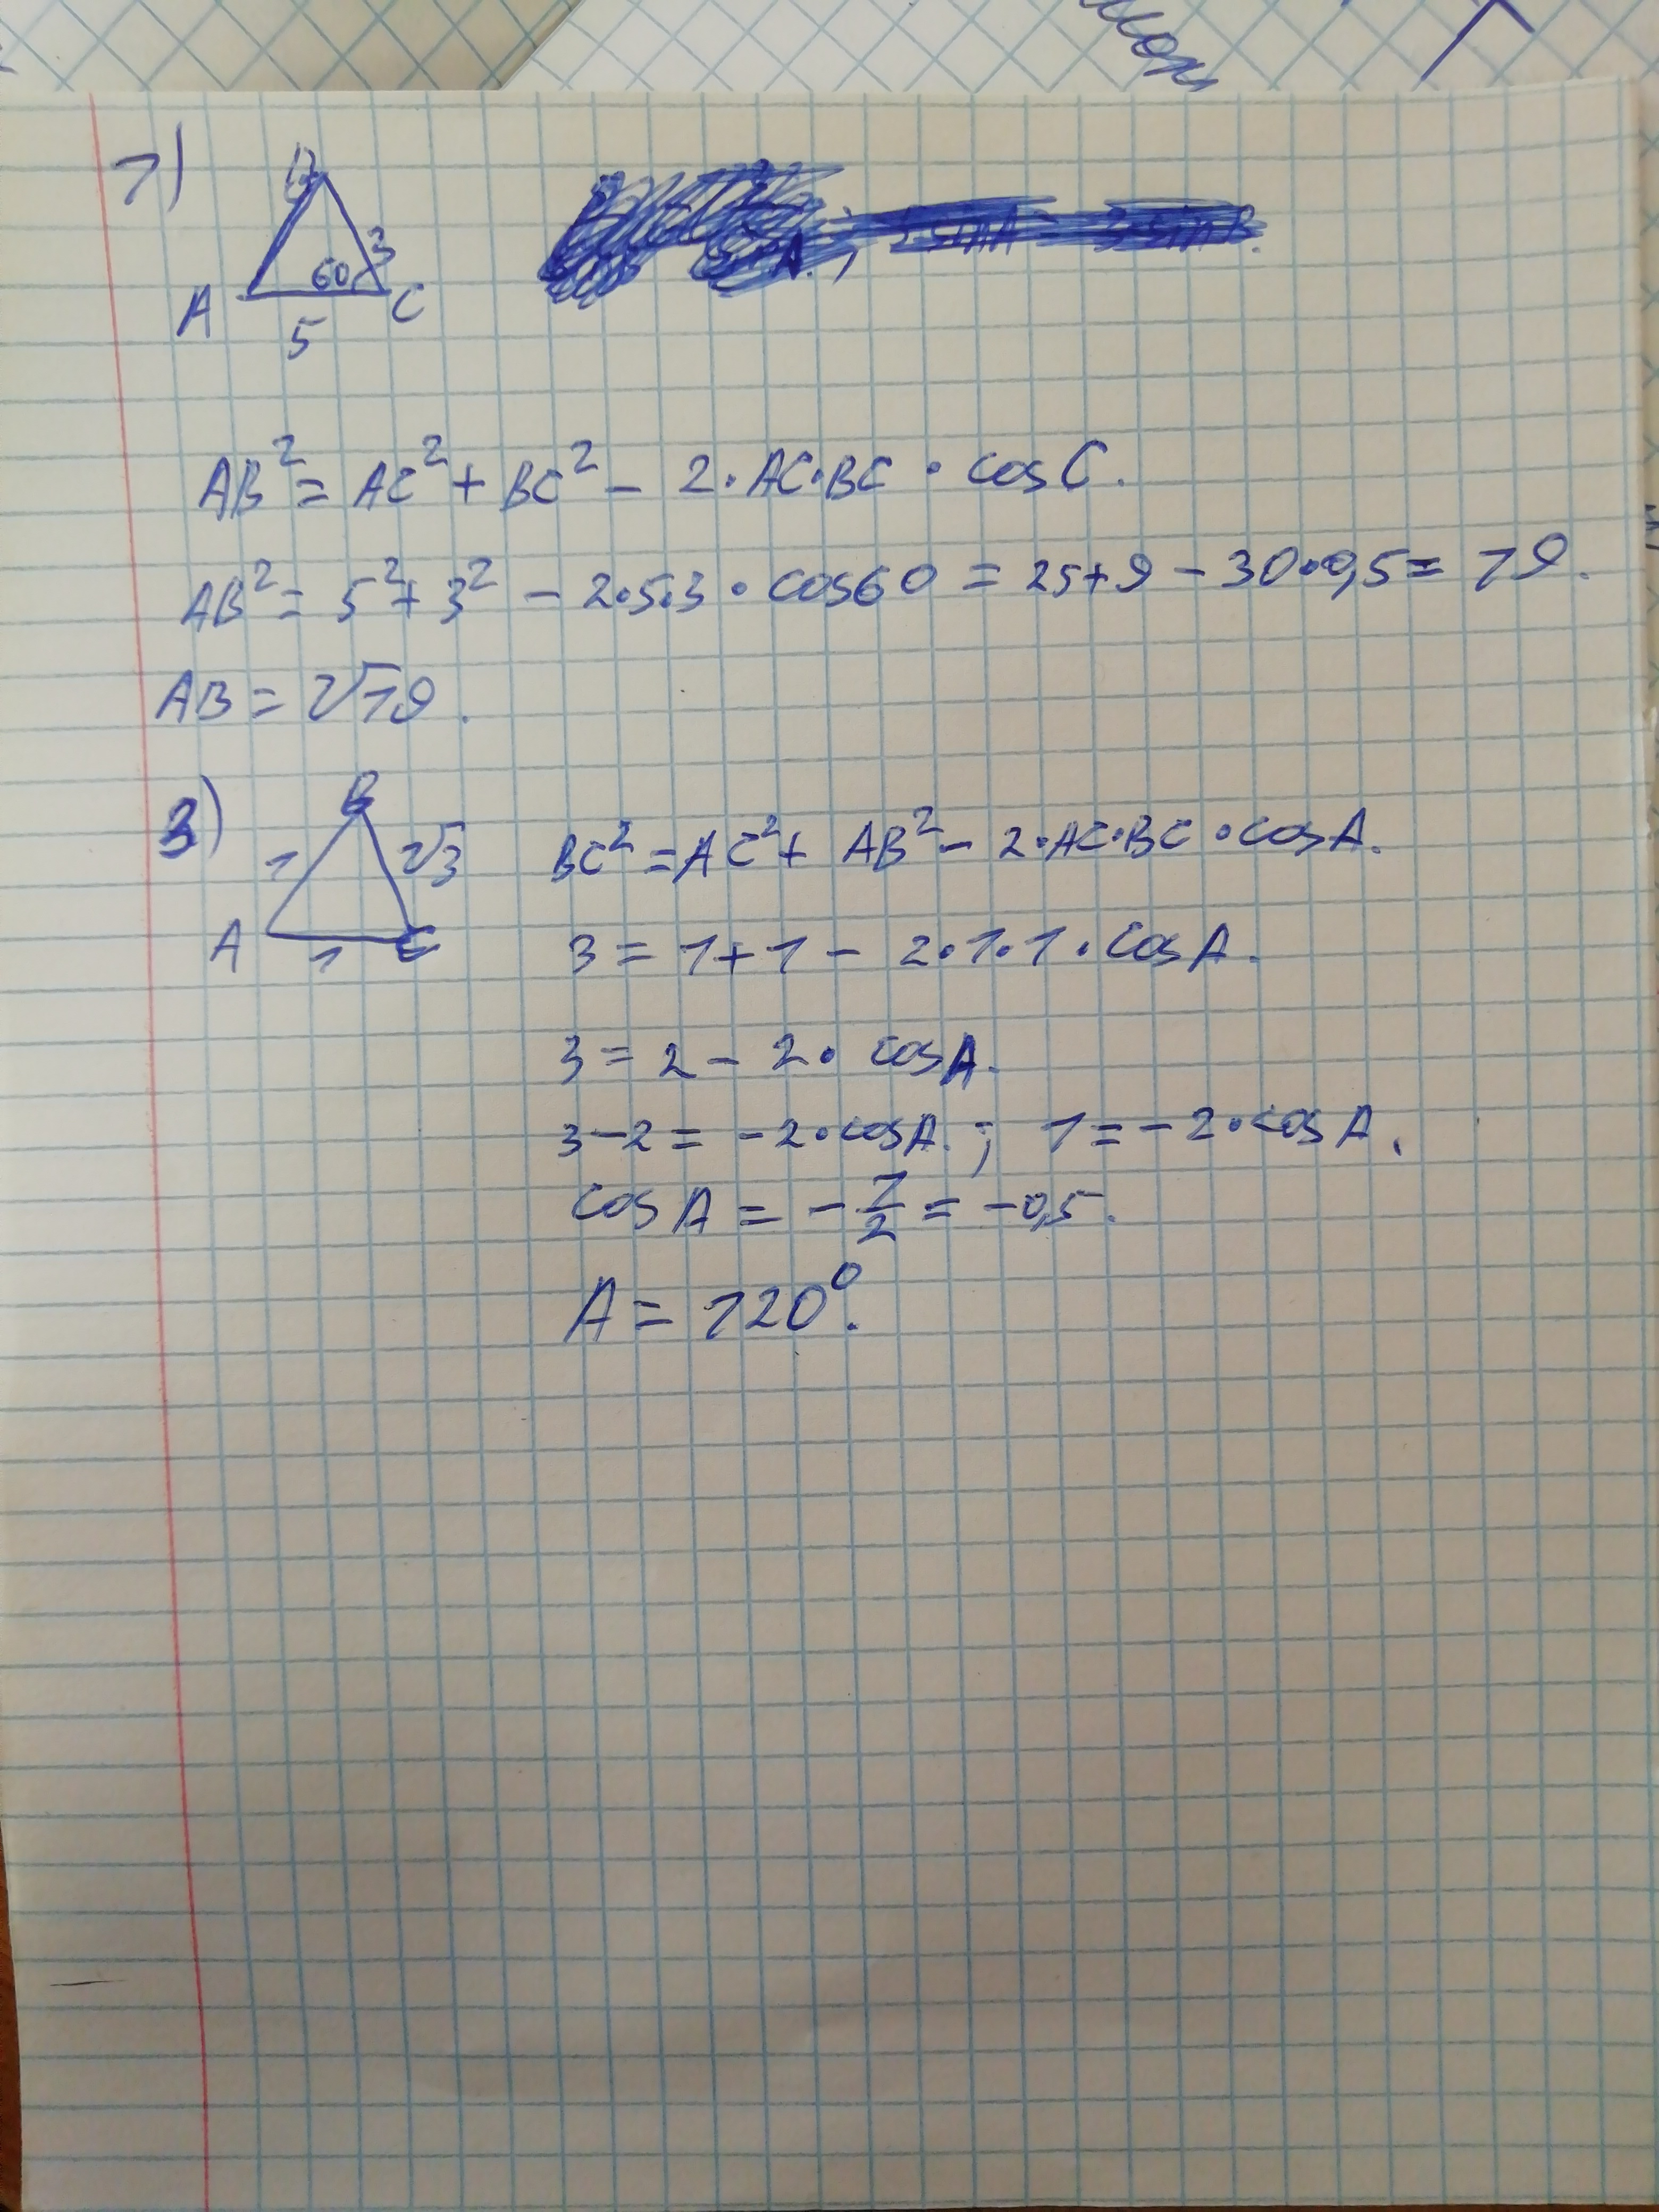 1)
B
3
60
A
C
5
AB² = AC² + BC² - 2·AC·BC · cos C.
AB² = 5² + 3² - 2·5·3 · cos60 = 25+9 - 30·0,5 = 19.
AB = √19.
3)
B
1
√3
A
C
1
BC² = AC² + AB² - 2·AC·BC · cosA.
3 = 1+1 - 2·1·1·cosA.
3 = 2 - 2· cosA.
3-2 = -2·cosA.; 1 = -2·cosA.
cosA = -1/2 = -0,5.
A = 120°.